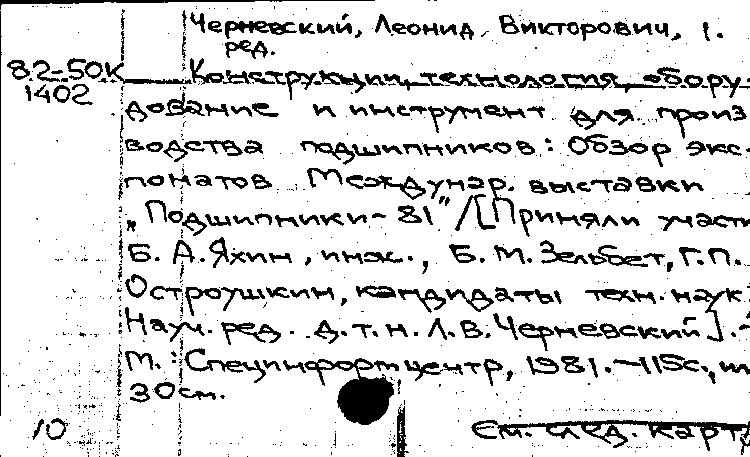 Черневский, Леонид Викторович, 1.
ред.
82-50К Конструкции, технология, обору-
1402
дование и инструмент для произ
водства подшипников: Обзор экс-
понатов Междунар. выставки
„Подшипники-81"/[Приняли участи
Б. А. Яхин, инж., Б. М. Зельбет, Г. П.
Остроушкин, кандидаты техн. наук
Науч. ред. д. т. н. Л. В. Черневский].-
М.: Специнформцентр, 1981.-115с., ил
30см.
10
См. след. карт